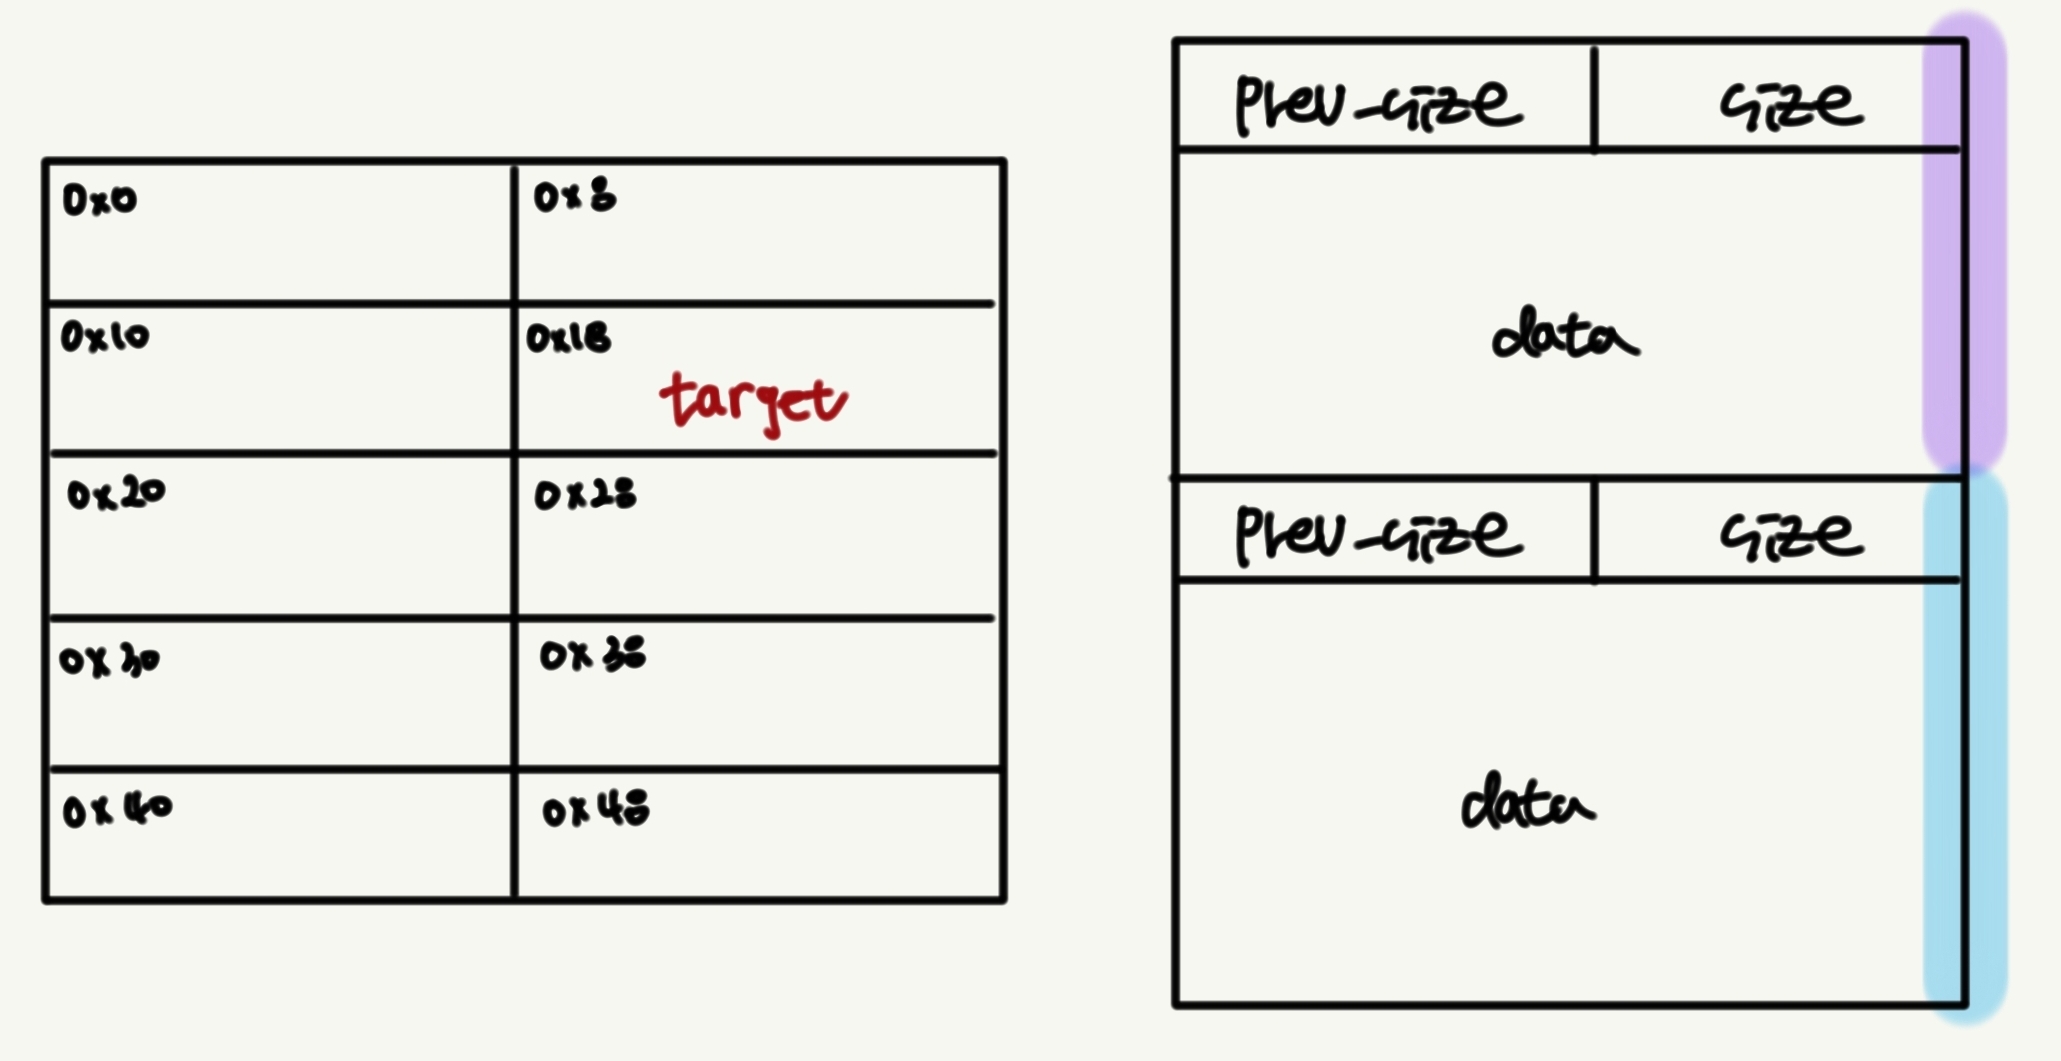 0x0 0x8
0x10 0x18
target
0x20 0x28
0x30 0x38
0x40 0x48
Prev_size size
data
Prev_size size
data